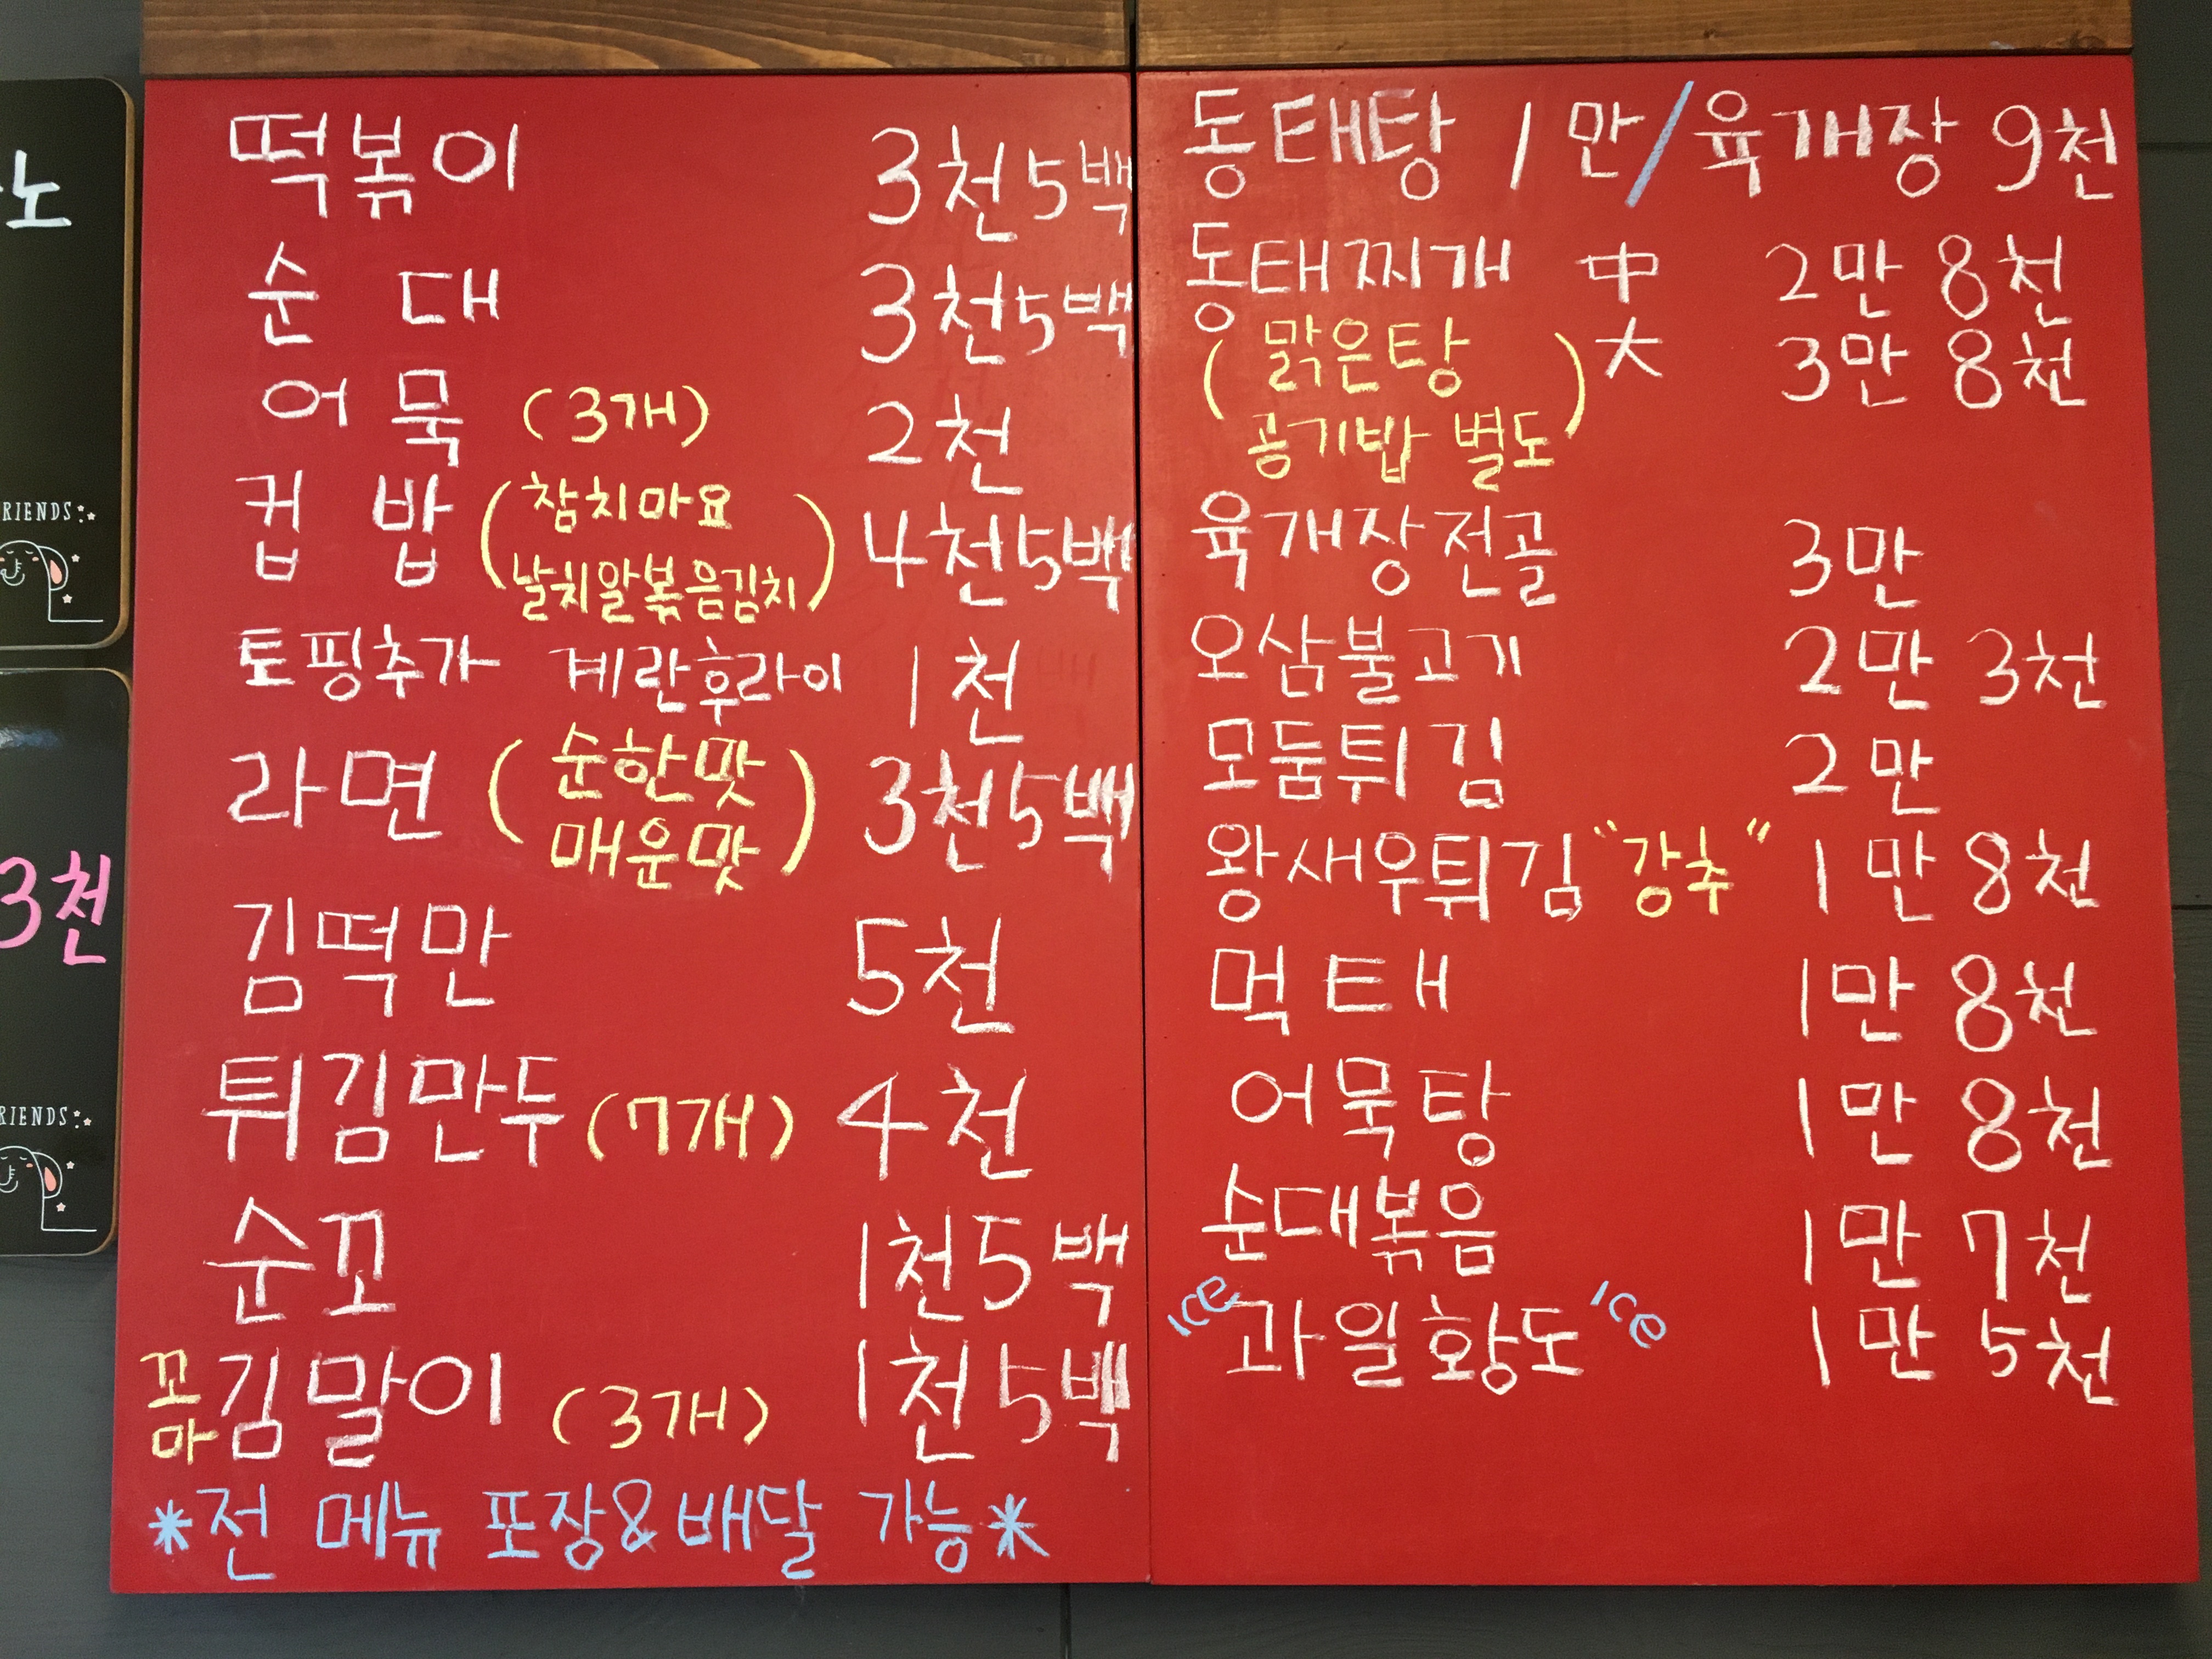 떡볶이 3천5백
순대 3천5백
어묵 (3개) 2천
컵밥 (참치마요
날치알볶음김치) 4천5백
토핑추가 계란후라이 1천
라면 (순한맛
매운맛) 3천5백
김떡만 5천
튀김만두 (7개) 4천
순꼬 1천5백
꼬마김말이 (3개) 1천5백
*전 메뉴 포장&배달 가능*
동태탕 1만/육개장 9천
동태찌개 中 2만 8천
(맑은탕 大 3만 8천
공기밥 별도)
육개장전골 3만
오삼불고기 2만 3천
모둠튀김 2만
왕새우튀김 "강추" 1만 8천
먹태 1만 8천
어묵탕 1만 8천
순대볶음 1만 7천
ice 과일황도 ice 1만 5천
노
RIENDS
3천
RIENDS